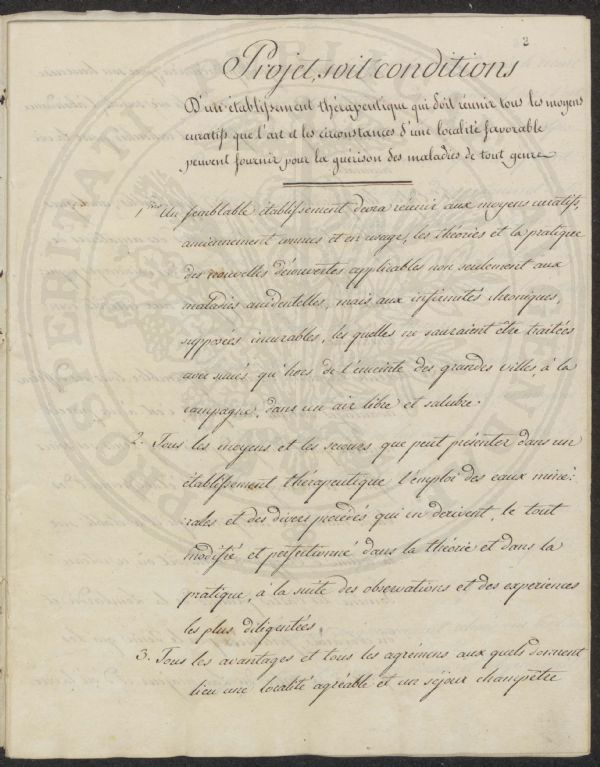 2
Projet, soit conditions
D'un établissement thérapeutique qui doit réunir tous les moyens
curatifs que l'art et les circonstances d'une localité favorable
peuvent fournir pour la guérison des maladies de tout genre
1.mo Un semblable établissement devra réunir aux moyens curatifs,
anciennement connus et en usage, les théories et la pratique
des nouvelles découvertes applicables non seulement aux
maladies accidentelles, mais aux infirmités chroniques,
supposées incurables, les quelles ne sauraient être traitées
avec succès qu'hors de l'enceinte des grandes villes, à la
campagne, dans un air libre et salubre.
2. Tous les moyens et les secours que peut présenter dans un
établissement thérapeutique l'emploi des eaux miné-
rales et des divers procédés qui en derivent, le tout
modifié et perfectionné dans la théorie et dans la
pratique, à la suite des observations et des experiences
les plus diligentées.
3. Tous les avantages et tous les agrémens aux quels donnent
lieu une localité agréable et un séjour champêtre
PROSPERITATI PUBLICAE